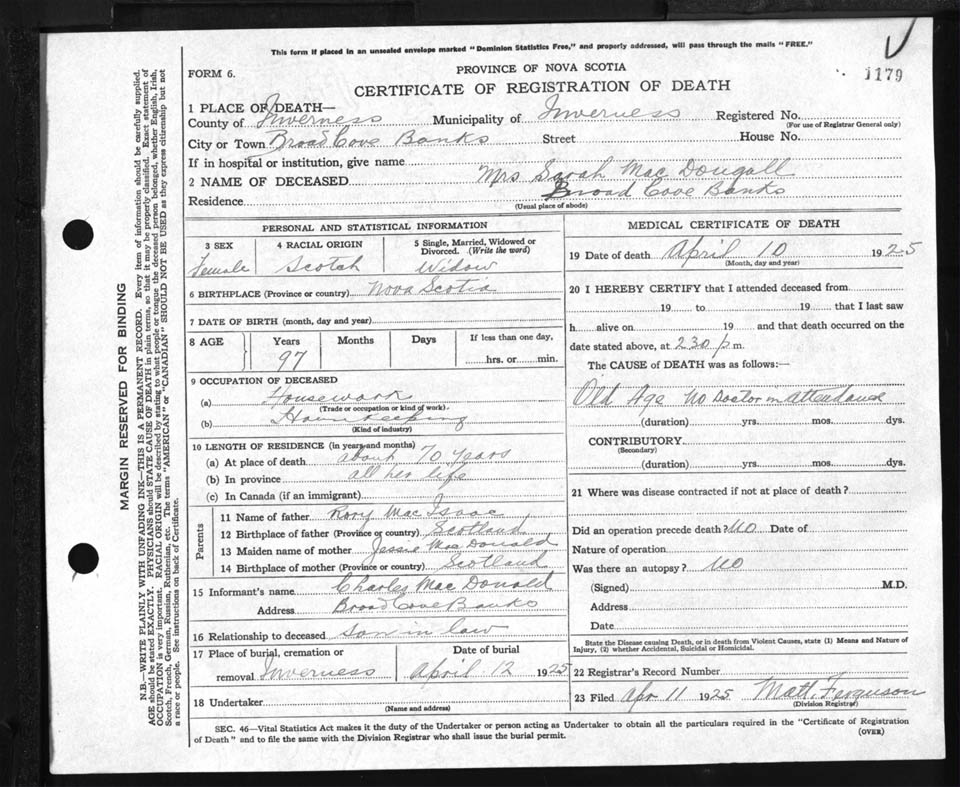 This form if placed in an unsealed envelope marked "Dominion Statistics Free," and properly addressed, will pass through the mails "FREE."
1179
FORM 6.
PROVINCE OF NOVA SCOTIA
CERTIFICATE OF REGISTRATION OF DEATH
1 PLACE OF DEATH—
County of Inverness Municipality of Inverness Registered No.
(For use of Registrar General only)
City or Town Broad Cove Banks Street House No.
If in hospital or institution, give name
2 NAME OF DECEASED Mrs Sarah Mac Dougall
Residence Broad Cove Banks
(Usual place of abode)
MARGIN RESERVED FOR BINDING
N.B.—WRITE PLAINLY WITH UNFADING INK—THIS IS A PERMANENT RECORD. Every item of information should be carefully supplied.
AGE should be stated EXACTLY. PHYSICIANS should STATE CAUSE OF DEATH in plain terms, so that it may be properly classified. Exact statement of
OCCUPATION is very important. RACIAL ORIGIN will be described by stating to what people or tongue the deceased person belonged, whether English, Irish,
Scotch, French, German, Russian, Ruthenian, etc. The terms "AMERICAN" or "CANADIAN" SHOULD NOT BE USED as they express citizenship but not
a race or people. See instructions on back of Certificate.
PERSONAL AND STATISTICAL INFORMATION
3 SEX
Female
4 RACIAL ORIGIN
Scotch
5 Single, Married, Widowed or
Divorced. (Write the word)
Widow
6 BIRTHPLACE (Province or country) Nova Scotia
7 DATE OF BIRTH (month, day and year)
8 AGE Years Months Days If less than one day,
97 hrs. or min.
9 OCCUPATION OF DECEASED
(a) Housework
(Trade or occupation or kind of work).
(b) Housekeeping
(Kind of industry)
10 LENGTH OF RESIDENCE (in years and months)
(a) At place of death about 70 years
(b) In province all her life
(c) In Canada (if an immigrant)
Parents
11 Name of father Rory Mac Isaac
12 Birthplace of father (Province or country) Scotland
13 Maiden name of mother Jessie Mac Donald
14 Birthplace of mother (Province or country) Scotland
15 Informant's name Charles Mac Donald
Address Broad Cove Banks
16 Relationship to deceased son in law
17 Place of burial, cremation or
removal Inverness
Date of burial
April 12 1925
18 Undertaker
(Name and address)
MEDICAL CERTIFICATE OF DEATH
19 Date of death April 10 1925
(Month, day and year)
20 I HEREBY CERTIFY that I attended deceased from
19 to 19 that I last saw
h alive on 19 and that death occurred on the
date stated above, at 230 p m.
The CAUSE of DEATH was as follows:—
Old Age No Doctor in attendance
(duration) yrs. mos. dys.
CONTRIBUTORY
(Secondary)
(duration) yrs. mos. dys.
21 Where was disease contracted if not at place of death?
Did an operation precede death? No Date of
Nature of operation
Was there an autopsy? No
(Signed) M.D.
Address
Date
State the Disease causing Death, or in death from Violent Causes, state (1) Means and Nature of
Injury, (2) whether Accidental, Suicidal or Homicidal.
22 Registrar's Record Number
23 Filed Apr 11 1925 Matt. Ferguson
(Division Registrar)
SEC. 46—Vital Statistics Act makes it the duty of the Undertaker or person acting as Undertaker to obtain all the particulars required in the "Certificate of Registration
of Death" and to file the same with the Division Registrar who shall issue the burial permit.
(OVER)